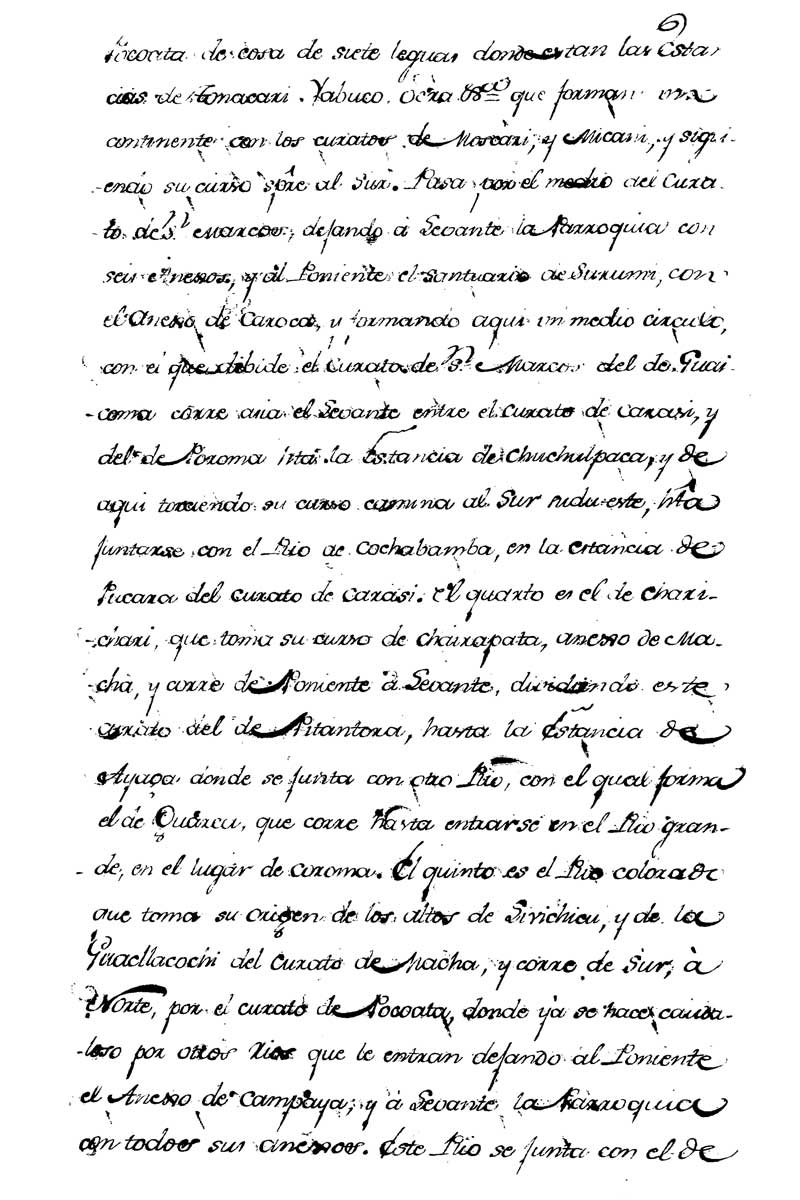 6
Pocoata de cosa de siete leguas donde estan las Estan
cias de tonacari. Yabuco. Ocra &cª que forman una
continente con los curatos de Moscari, y Micani, y sigui-
-endo su curso spre al Sur. Pasa por el medio del Cura
-to de Sn Marcos, dejando à Levante la Parroquia con
seis Anexos, y al Poniente el santuario de Surumi, con
el Anexo de Caroca, y formando aqui un medio circulo,
con el que dibide el Curato de Sn Marcos del de Guai-
-coma corre acia el Levante entre el curato de carasi, y
del de Poroma hta la Estancia de Chuchulpaca, y de
aqui torciendo su curso camina al Sur sudueste, hta
juntarse con el Rio de Cochabamba, en la estancia de
Pucara del curato de Carasi. el quarto es el de chari-
-chari, que toma su curso de chairapata, anexo de Ma-
-cha, y corre de Poniente à Levante, dividiendo este
curato del de Pitantora, hasta la Estancia de
Ayaça donde se junta con otro Rio, con el qual forma
el de Quàrcu, que corre hasta entrarse en el Rio gran-
-de, en el lugar de coroma. El quinto es el Rio colorado
que toma su origen de los altos de Sivichicu, y de la
Guacllacochi del Curato de Macha, y corre de Sur, à
Norte, por el curato de Pocoata, donde ya se hace cauda-
-loso por otros Rios que le entran dejando al Poniente
el Anexo de Campaya, y à Levante la Parroquia
con todos sus anexos. Este Rio se junta con el de